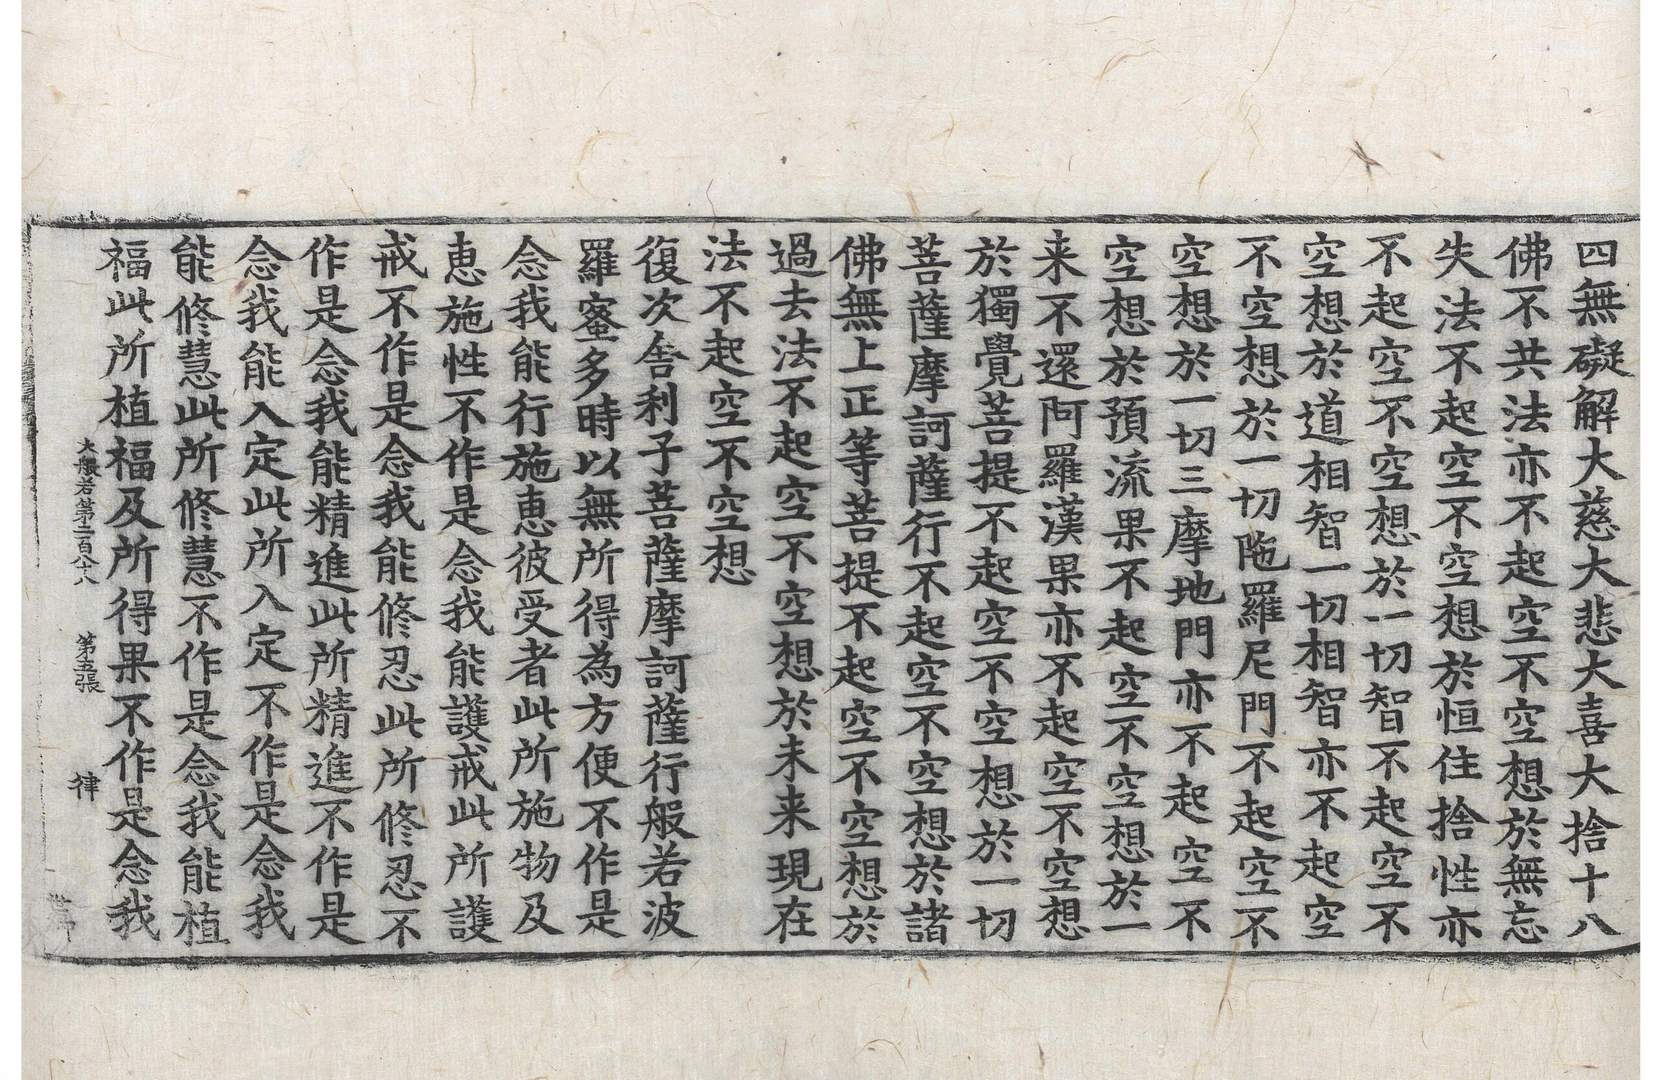 四無礙解大慈大悲大喜大捨十八
佛不共法亦不起空不空想於無忘
失法不起空不空想於恒住捨性亦
不起空不空想於一切智不起空不
空想於道相智一切相智亦不起空
不空想於一切陁羅尼門不起空不
空想於一切三摩地門亦不起空不
空想於預流果不起空不空想於一
来不還阿羅漢果亦不起空不空想
於獨覺菩提不起空不空想於一切
菩薩摩訶薩行不起空不空想於諸
佛無上正等菩提不起空不空想於
過去法不起空不空想於未来現在
法不起空不空想
復次舍利子菩薩摩訶薩行般若波
羅蜜多時以無所得為方便不作是
念我能行施恵彼受者此所施物及
恵施性不作是念我能護戒此所護
戒不作是念我能修忍此所修忍不
作是念我能精進此所精進不作是
念我能入定此所入定不作是念我
能修慧此所修慧不作是念我能植
福此所植福及所得果不作是念我
大般若第二百八十八 第五張 律